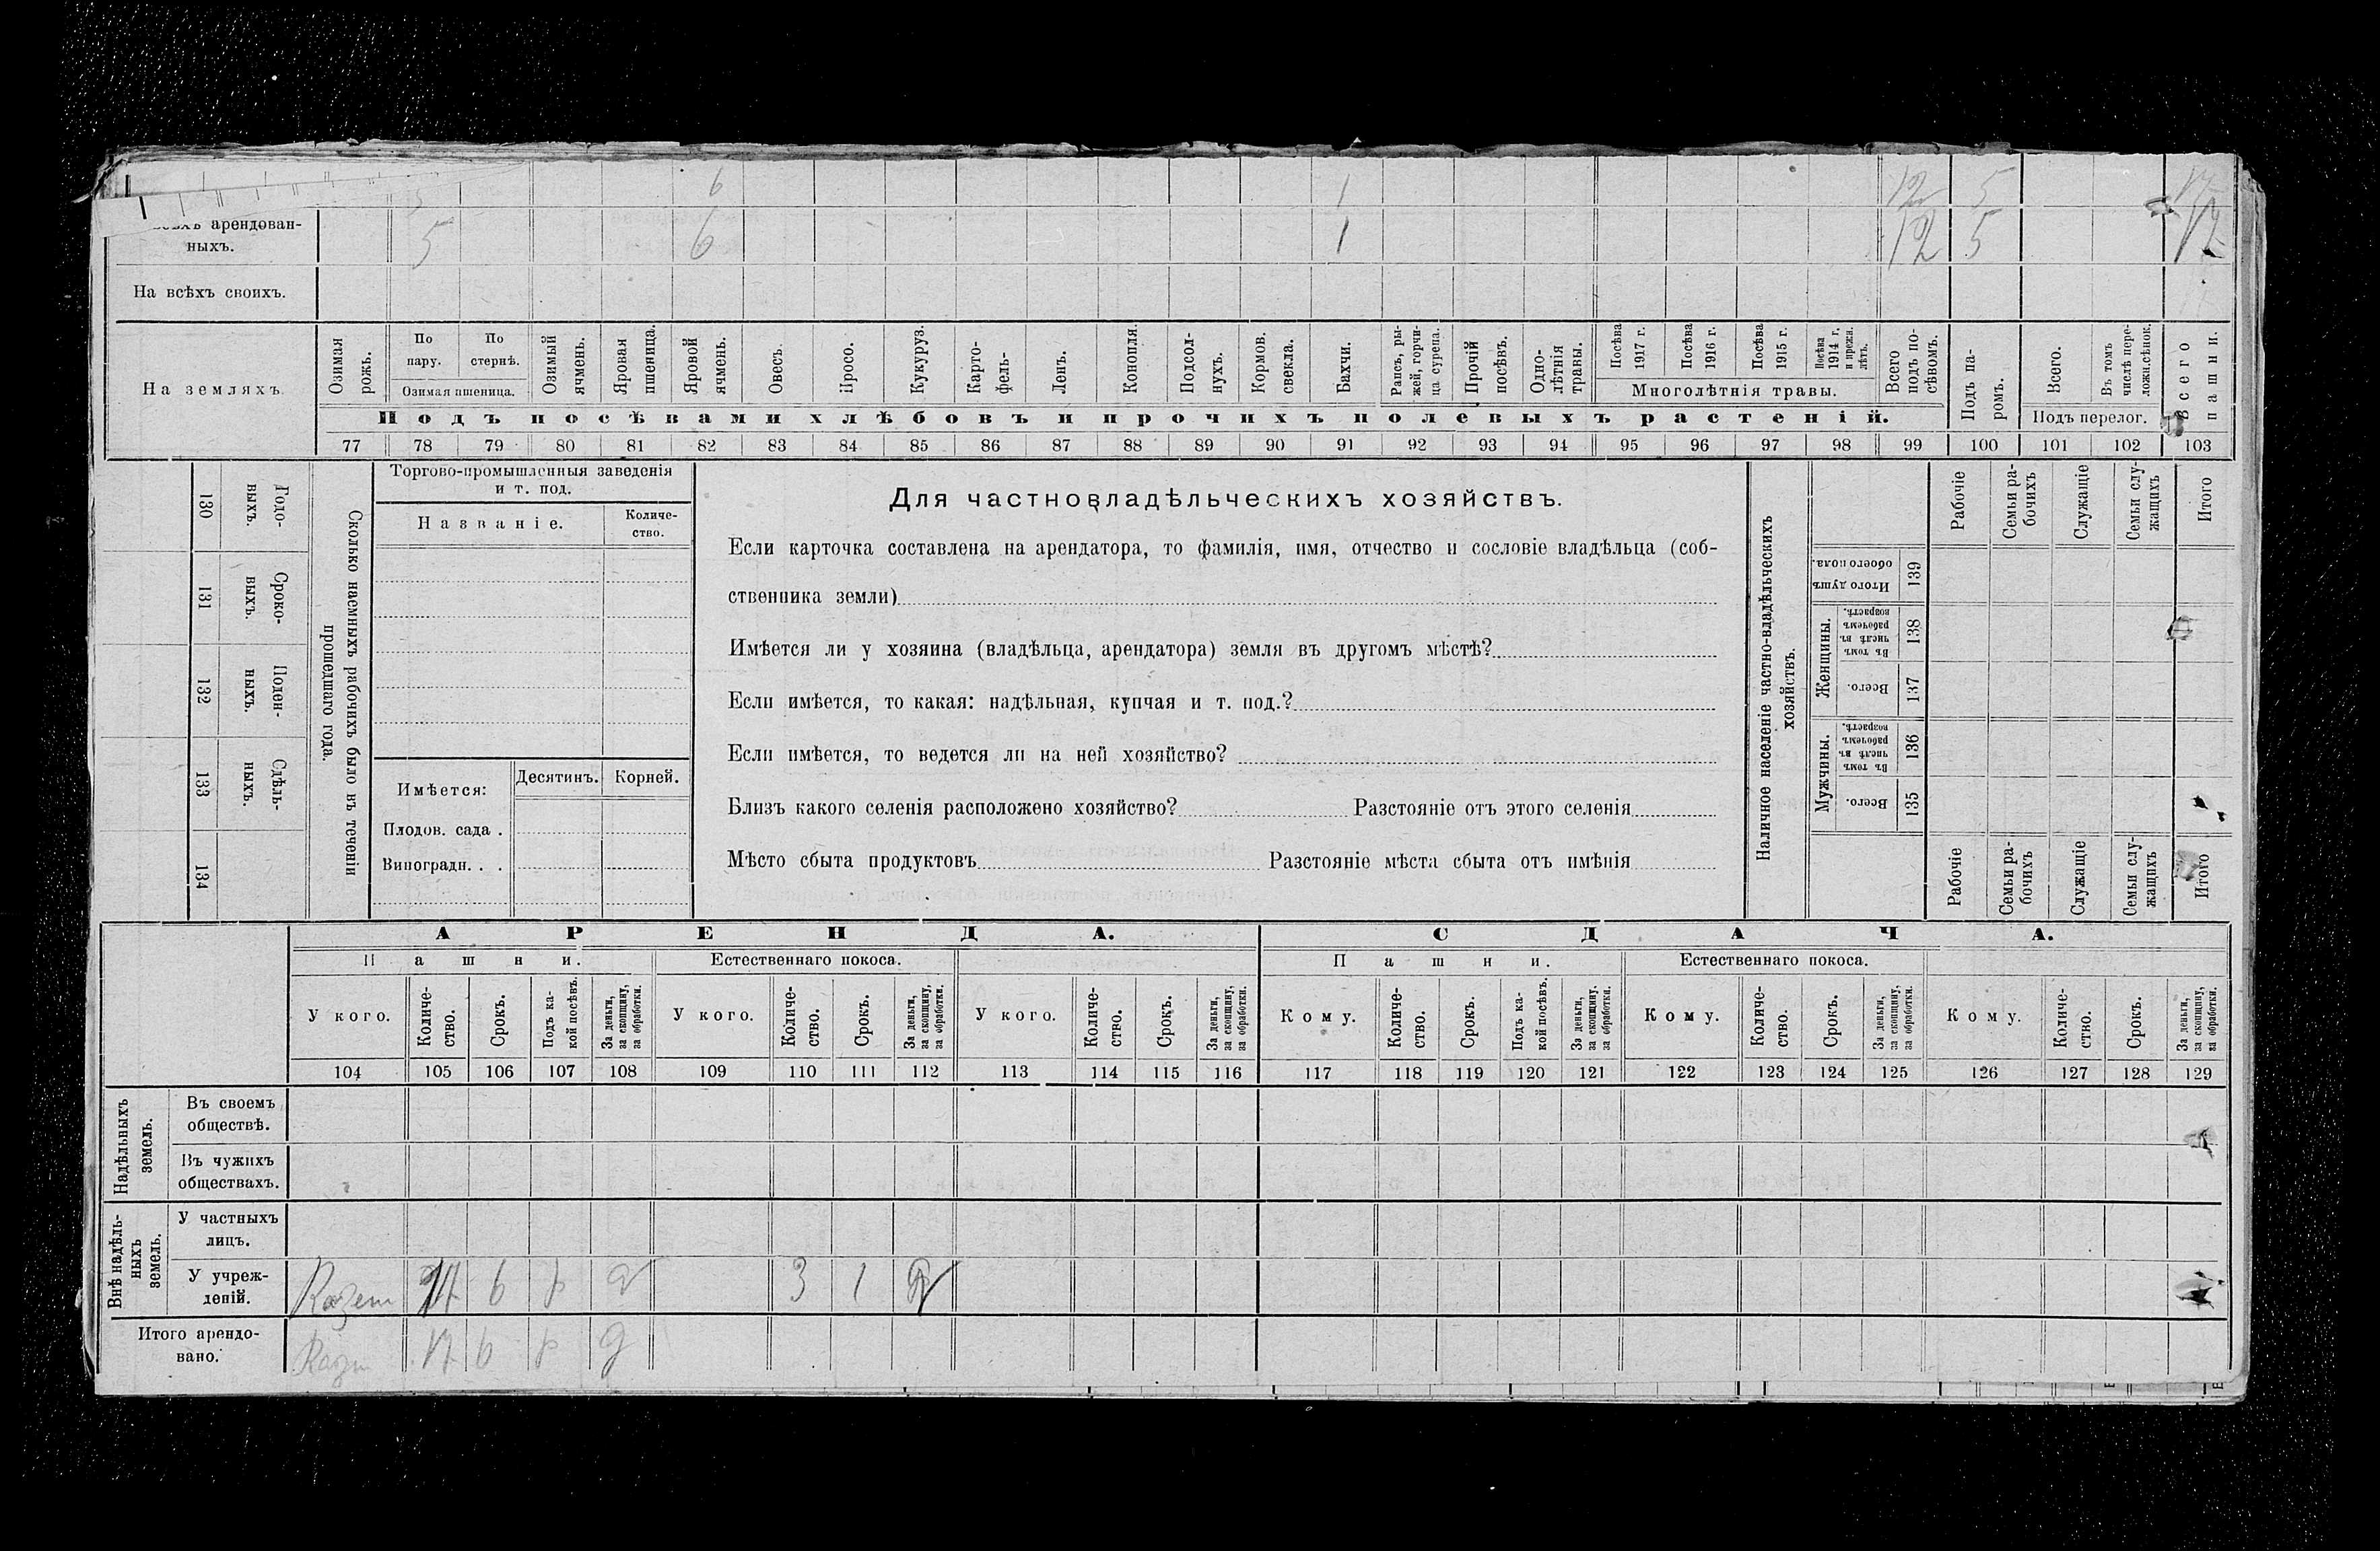 5 6 1 12 5 17
арендован-
ныхъ. 5 6 1 12 5 17
На всѣхъ своихъ.
На земляхъ.
Озимая рожь.
По пару.
По стернѣ.
Озимая пшеница.
Озимый ячмень.
Яровая пшеница.
Яровой ячмень.
Овесъ.
Просо.
Кукуруз.
Карто-фель-
Ленъ.
Конопля.
Подсол-нухъ.
Кормов. свекла.
Бахчи.
Рапсъ, ры-жей, горчи-ца сурепа.
Прочій посѣвъ.
Одно-лѣтнія травы.
Посѣва 1917 г.
Посѣва 1916 г.
Посѣва 1915 г.
Посѣва 1914 г. и прежн. лѣтъ.
Многолѣтнія травы.
Всего подъ по-сѣвомъ.
Подъ па-ромъ.
Всего.
Въ томъ числѣ пере-ложн.сѣнок.
Подъ перелог.
Всего пашни.
Подъ посѣвами хлѣбовъ и прочихъ полевыхъ растеній.
77 78 79 80 81 82 83 84 85 86 87 88 89 90 91 92 93 94 95 96 97 98 99 100 101 102 103
Годо-выхъ. 130
Сроко-выхъ. 131
Поден-ныхъ. 132
Сдѣль-ныхъ. 133
134
Сколько наемныхъ рабочихъ было въ теченіи
прошедшаго года.
Торгово-промышленныя заведенія
и т. под.
Названіе.
Количе-
ство.
Имѣется:
Десятинъ. Корней.
Плодов. сада .
Виноградн. . .
Для частновладѣльческихъ хозяйствъ.
Если карточка составлена на арендатора, то фамилія, имя, отчество и сословіе владѣльца (соб-
ственника земли)
Имѣется ли у хозяина (владѣльца, арендатора) земля въ другомъ мѣстѣ?
Если имѣется, то какая: надѣльная, купчая и т. под.?
Если имѣется, то ведется ли на ней хозяйство?
Близъ какого селенія расположено хозяйство? Разстояніе отъ этого селенія
Мѣсто сбыта продуктовъ Разстояніе мѣста сбыта отъ имѣнія
Наличное населеніе частно-владѣльческихъ
хозяйствъ.
Рабочіе
Семьи ра-бочихъ
Служащіе
Семьи слу-жащихъ
Итого
Итого душъ обоего пола. 139
Женщины.
Въ томъ числѣ въ рабочемъ возрастѣ. 138
Всего. 137
Мужчины.
Въ томъ числѣ въ рабочемъ возрастѣ. 136
Всего. 135
Рабочіе
Семьи ра-бочихъ
Служащіе
Семьи слу-жащихъ
Итого
АРЕНДА. СДАЧА.
Пашни. Естественнаго покоса. Пашни. Естественнаго покоса.
У кого.
Количе-ство.
Срокъ.
Подъ ка-кой посѣвъ.
За деньги, за скопщину, за обработки.
У кого.
Количе-ство.
Срокъ.
За деньги, за скопщину, за обработки.
У кого.
Количе-ство.
Срокъ.
За деньги, за скопщину, за обработки.
Кому.
Количе-ство.
Срокъ.
Подъ ка-кой посѣвъ.
За деньги, за скопщину, за обработки.
Кому.
Количе-ство.
Срокъ.
За деньги, за скопщину, за обработки.
Кому.
Количе-ство.
Срокъ.
За деньги, за скопщину, за обработки.
104 105 106 107 108 109 110 111 112 113 114 115 116 117 118 119 120 121 122 123 124 125 126 127 128 129
Надѣльныхъ земель.
Въ своемъ
обществѣ.
Въ чужихъ
обществахъ.
Внѣ надѣль-ныхъ земель.
У частныхъ
лицъ.
У учреж-
деній. 17 6 р д 3 1 д
Итого арендо-
вано. 17 6 р д